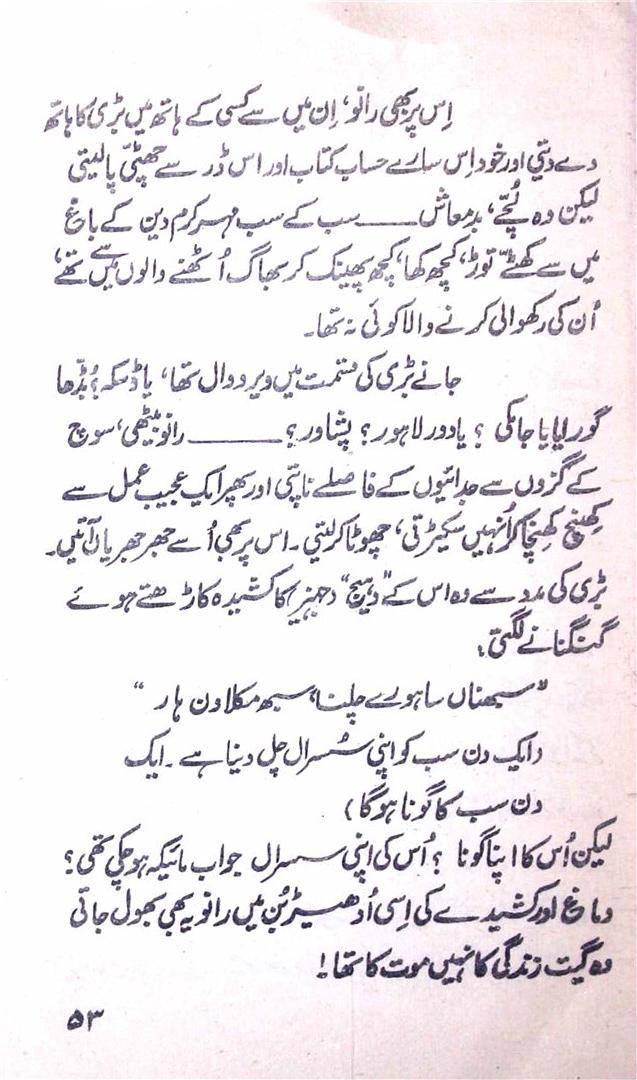 اِس پر بھی رانو، اِن میں سے کسی کے ہاتھ میں بڑی کا ہاتھ
دے دیتی اور خود اِس سارے حساب کتاب اور اس ڈر سے چھٹّی پا لیتی
لیکن وہ لُچّے، بدمعاش ——— سب کے سب مہر کرم دین کے باغ
میں سے کھٹّے توڑ، کچھ کھا، کچھ پھینک کر بھاگ اُٹھنے والوں میں سے تھے،
اُن کی رکھوالی کرنے والا کوئی نہ تھا۔
جانے بڑی کی قسمت میں ویرووال تھا، یا ڈسکہ؟ بُڈّھا
گورایا یا جامکی؟ یا دور لاہور؟ پشاور؟ ——— رانو بیٹھی، سوچ
کے گزوں سے جدائیوں کے فاصلے ناپتی اور پھر ایک عجیب عمل سے
کھینچ کھنچا کر اُنہیں سکیڑتی، چھوٹا کر لیتی۔ اس پر بھی اُسے جھرجھریاں آتیں۔
بڑی کی مدد سے وہ اس کے "دہیج" (جہیز) کا کشیدہ کاڑھتے ہوئے
گنگنانے لگتی؛
"سبھناں ساہورے چلنا، سبھ مکلاون ہار"
(ایک دن سب کو اپنی سُسرال چل دینا ہے۔ ایک
دن سب کا گونا ہوگا)
لیکن اُس کا اپنا گونا؟ اُس کی اپنی سسرال جو اب مائیکہ ہو چکی تھی؟
دماغ اور کشیدے کی اِسی اُدھیڑبُن میں رانو یہ بھی بھول جاتی
وہ گیت زندگی کا نہیں موت کا تھا!
۵۳